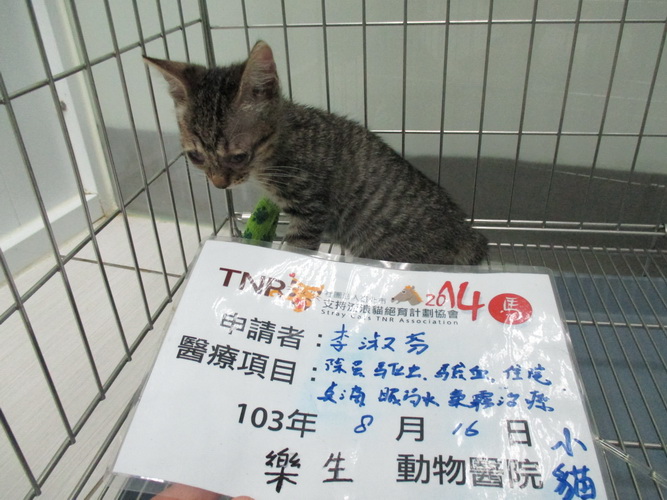 TNR 2014 馬
支持流浪貓絕育計劃協會
Stray Cats TNR Association
申請者：李淑芬
醫療項目：除蚤 驅虫、驗血、住院
點滴 眼药水 氣霧治療
103年 8 月 16 日
樂生 動物醫院
小貓